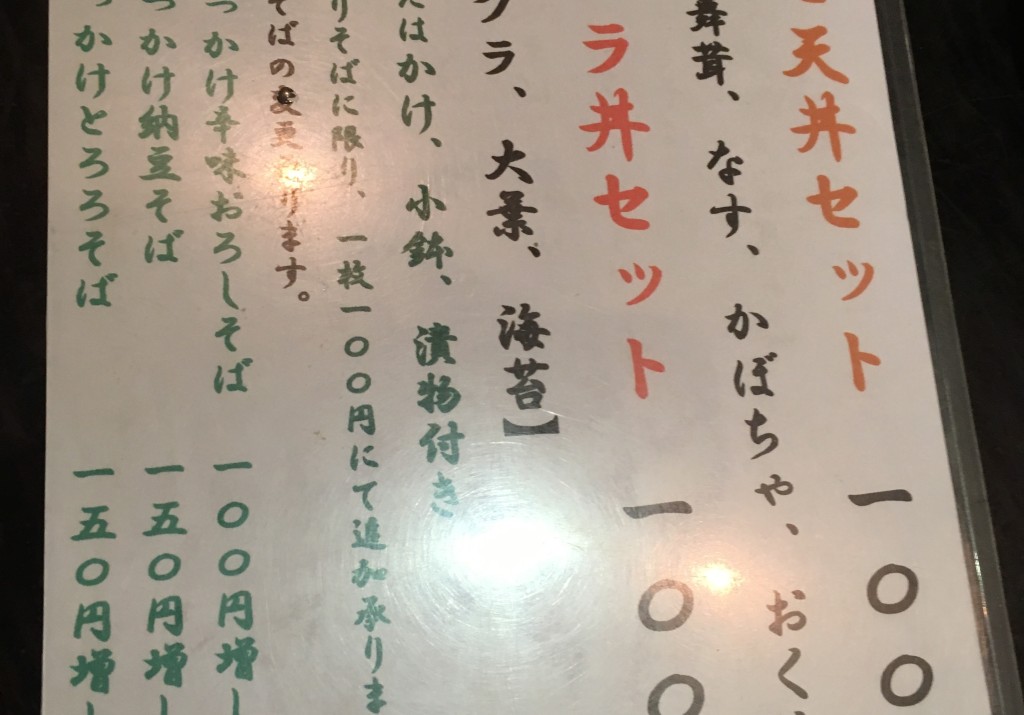 天丼セット 一〇〇
舞茸、なす、かぼちゃや、おく
ラ丼セット 一〇〇
ラ、大葉、海苔】
はかけ、小鉢、漬物付き
りそばに限り、一枚一〇〇円にて追加承りま
そばの変更承ります。
っかけ辛味おろしそば 一〇〇円増し
っかけ納豆そば 一五〇円増し
っかけとろろそば 一五〇円増し